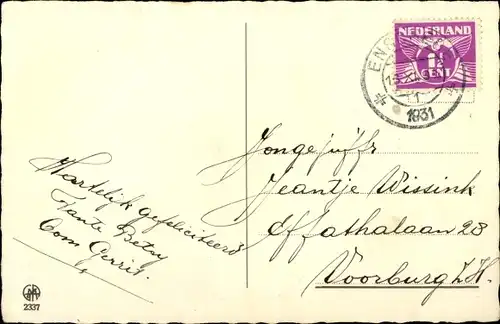 NEDERLAND
1½
CENT
1931
Hartelijk gefeliciteerd
Tante Betsy
Oom Gerrit.
Jongejuffr
Jeantje Wissink
Effathalaan 23
Voorburg Z.H.
2337